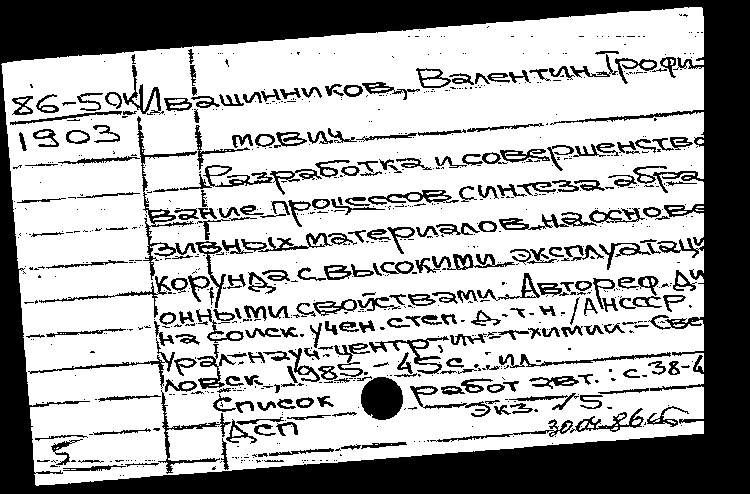 86-50к Ивашинников, Валентин Трофи-
1903 мович.
Разработка и совершенство
вание процессов синтеза абра
зивных материалов на основе
корунда с высокими эксплуатаци
онными свойствами: Автореф. Ди
на соиск. учен. степ. д. т. н. / АН СССР.
Урал. науч. центр, ин-т химии. - Све
ловск, 1985. - 45 с. : ил.
Список работ авт.: с. 38-4
ДСП Экз. №5.
5 30.04.86